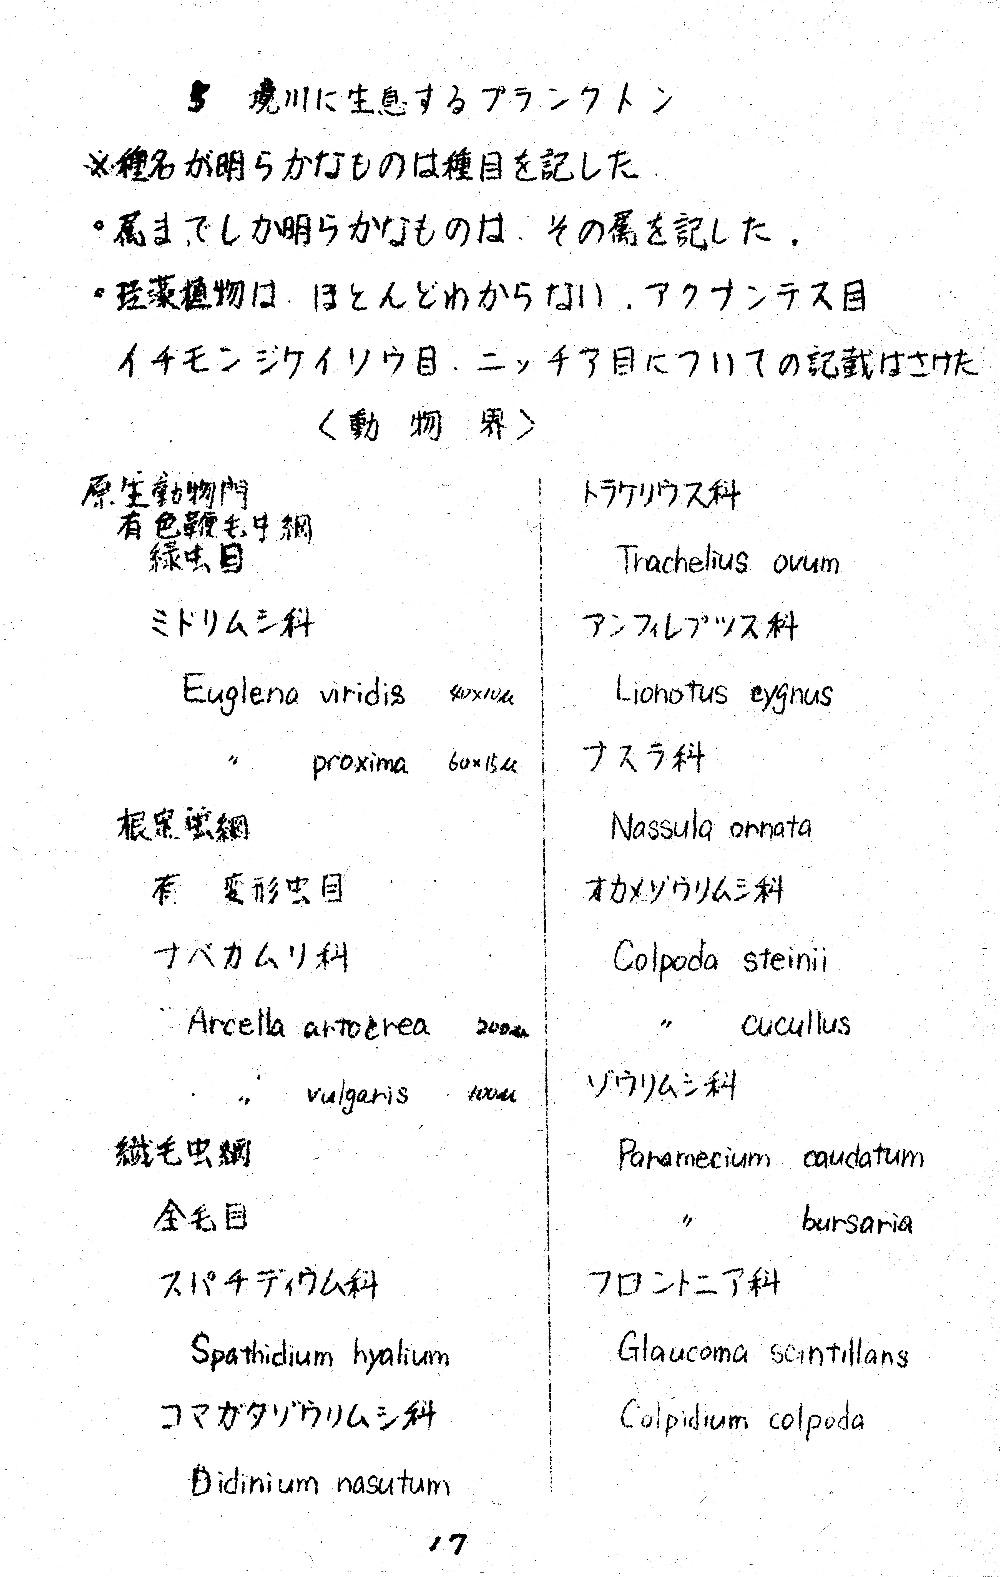 5 境川に生息するプランクトン
※種名が明らかなものは種目を記した
・属までしか明らかなものは、その属を記した.
・珪藻植物は、ほとんどわからない.アクナンテス目
イチモンジケイソウ目、ニッチア目についての記載はさけた
〈動物界〉
原生動物門
有色鞭毛虫綱
緑虫目
ミドリムシ科
Euglena viridis 40×10μ
〃 proxima 60×15μ
根足虫綱
有 変形虫目
ナベカムリ科
Arcella artocrea 200μ
〃 vulgaris 100μ
繊毛虫綱
全毛目
スパチディウム科
Spathidium hyalium
コマガタゾウリムシ科
Didinium nasutum
トラケリウス科
Trachelius ovum
アンフィレプツス科
Lionotus cygnus
ナスラ科
Nassula ornata
オカメゾウリムシ科
Colpoda steinii
〃 cucullus
ゾウリムシ科
Paramecium caudatum
〃 bursaria
フロントニア科
Glaucoma scintillans
Colpidium colpoda
17